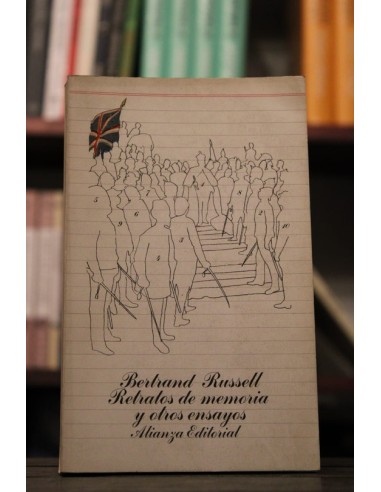 5
9
6
7
4
3
2
10
Bertrand Russell
Retratos de memoria
y otros ensayos
Alianza Editorial